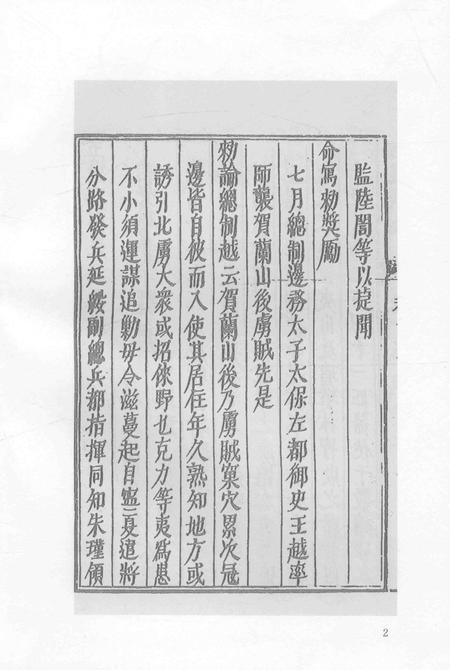 監陸誾等以捷聞
命寫勑奬勵
七月總制邊務太子太保左都御史王越率
師襲賀蘭山後虜賊先是
勑諭總制越云賀蘭山後乃虜賊窠穴累次冦
邊皆自彼而入使其居住年久熟知地方或
誘引北虜大衆或招徠野乜克力等夷爲患
不小須運謀追勦毋令滋蔓起自寧夏遣將
分路發兵延綏副總兵都指揮同知朱瑾領
2